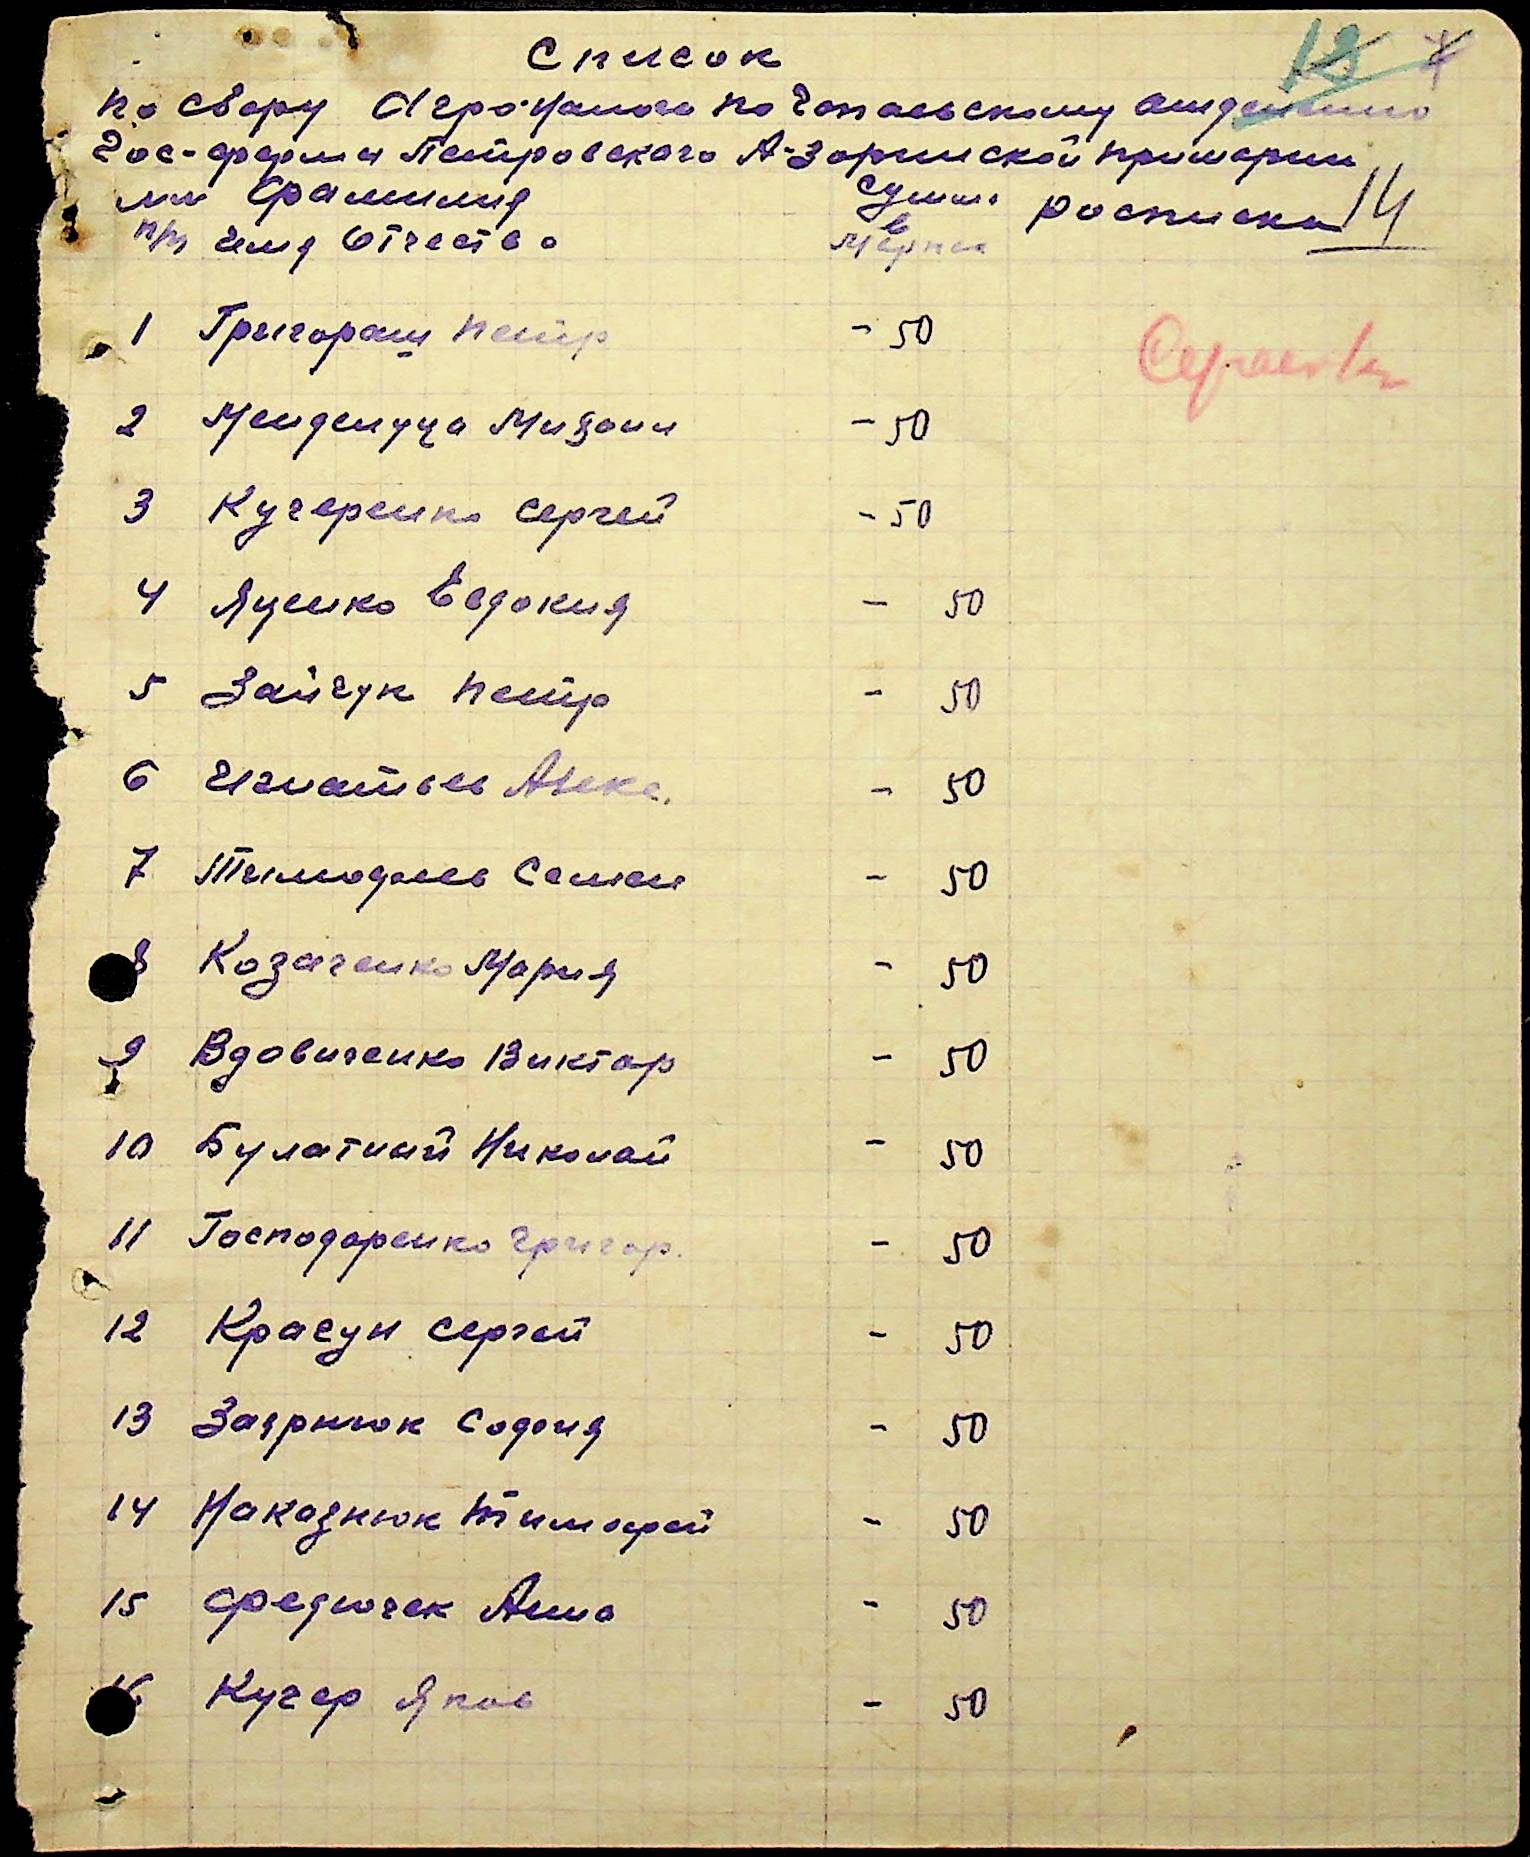 Список
по сбору Агро-налога по Чапаевскому отделению
Гос-фермы Петровского А-Зоринской примарии
№№ Фамилия сумма росписка 14
п/п Имя Отчество в Марках
1 Григораш Петр - 50
2 Менденуца Михаил - 50
3 Кучеренко Сергей - 50
4 Яценко Евдокия - 50
5 Зайчук Петр - 50
6 Игнатьев Алекс. - 50
7 Тимофеев Семен - 50
8 Козаченко Мария - 50
9 Вдовиченко Виктор - 50
10 Булатный Николай - 50
11 Господоренко Григор. - 50
12 Красун Сергей - 50
13 Заярнюк София - 50
14 Наказнюк Тимофей - 50
15 Федючек Анна - 50
16 Кучер Яков - 50